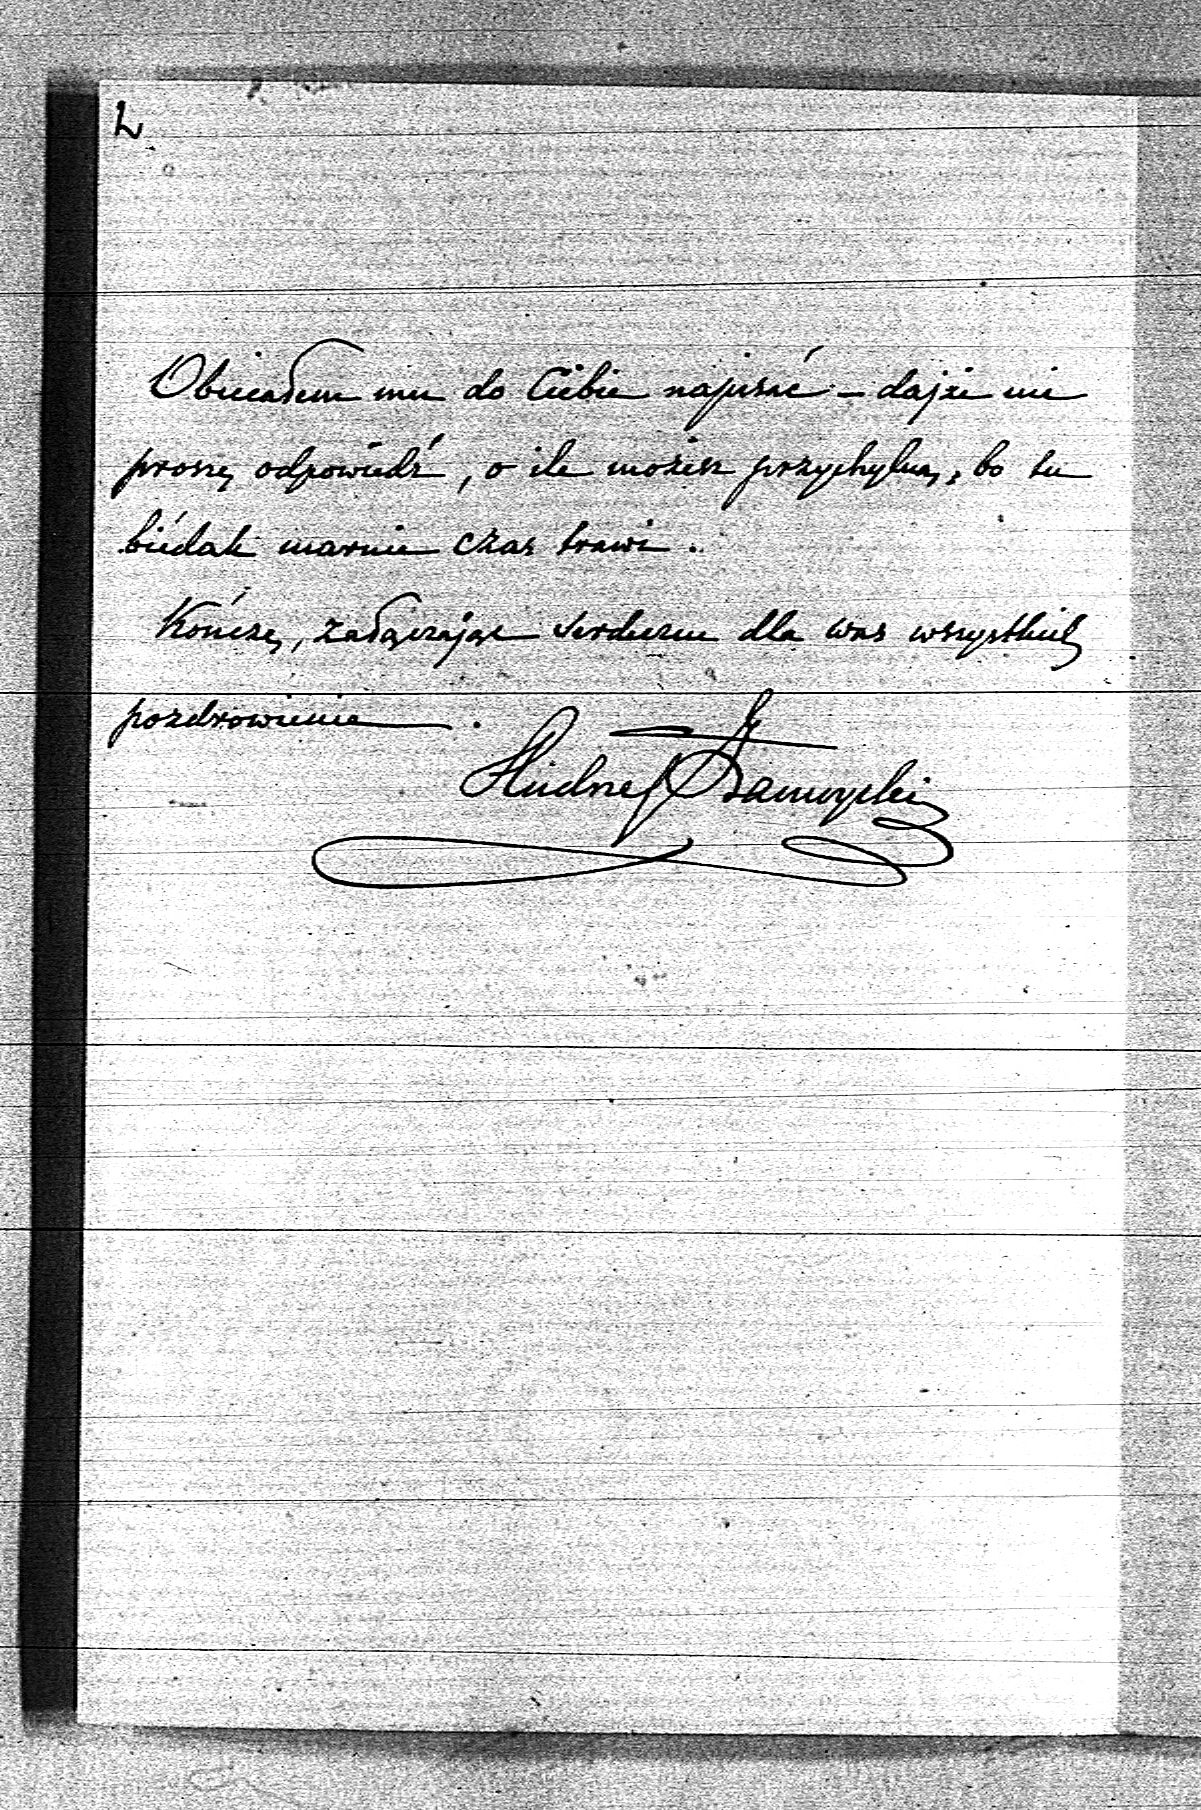 2
Obiecałem mu do Ciebie napisać – dajże mi
proszę odpowiedź, o ile możesz przychylną, bo tu
biédak marnie czas trawi.
Kończę, załączając serdeczne dla was wszystkich
pozdrowienie.